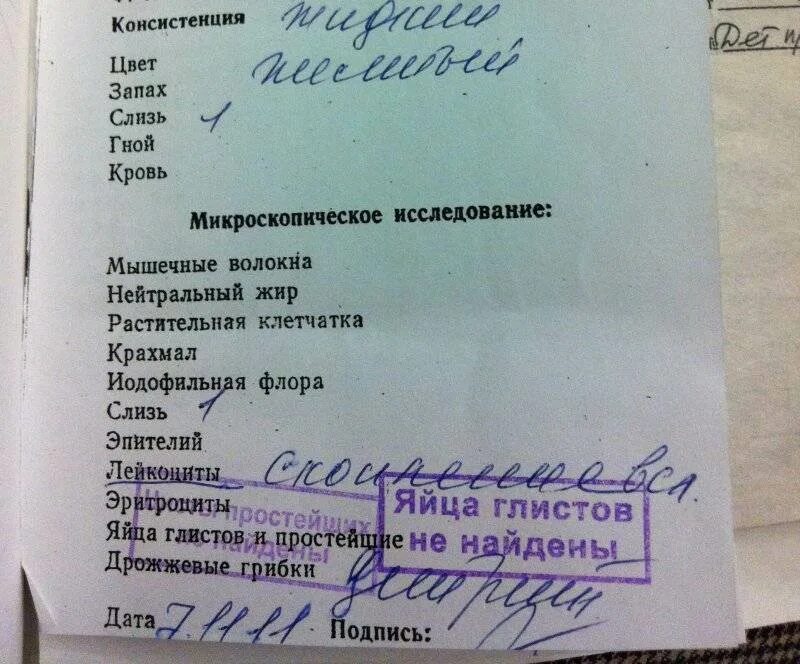 Консистенция жидкий
Дет
Цвет желтый
Запах
Слизь 1
Гной
Кровь
Микроскопическое исследование:
Мышечные волокна
Нейтральный жир
Растительная клетчатка
Крахмал
Иодофильная флора
Слизь 1
Эпителий
Лейкоциты скопление в сл.
Эритроциты
Цисты простейших
не найдены
Яйца глистов
не найдены
Яйца глистов и простейшие
Дрожжевые грибки
Дата 7.11.11 Подпись: